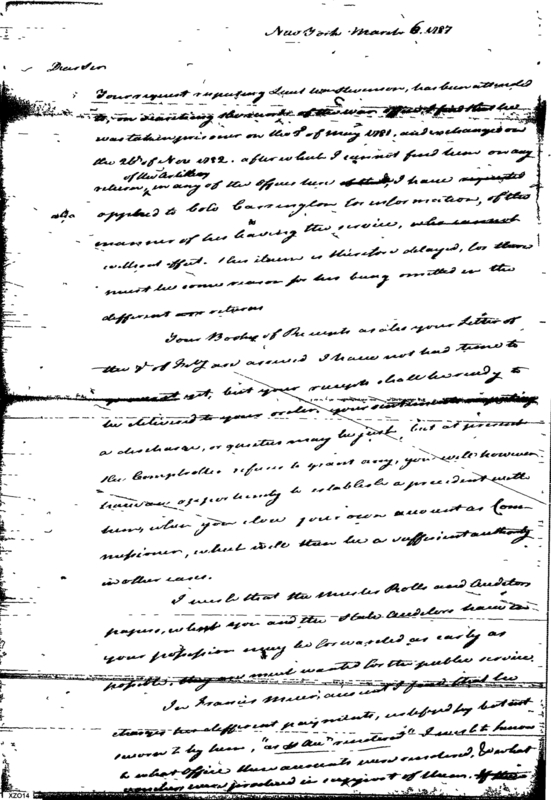 New York March 6. 1787
Dear Sir
Your request respecting Lieut Stevenson, has been attended
to, on searching the records of the War office I find that he
was taken prisoner on the of May 1781. and exchanged on
the 26th of Nov 1782. after which I cannot find him on any
of the Artillery
return, in any of the Offices here I have requested
applied to Colo Carrington for information, of the
manner of his leaving the service, who cannot
without effect. His claim is therefore delayed, for there
must be some reason for his being omitted in the
different returns
Your Books of Receipts as also your Letter of
the of July are arrived I have not had time to
yet, but your receipts shall be ready to
be delivered to your order. your sentiments respecting
a discharge, or quietus may be just, but at present
the Comptroller refuses to grant any, you will however
have an opportunity to establish a precedent with
him, when you close your own account as Com
missioner, which will then be a sufficient authority
in other cases.
I wish that the Muster Rolls and Auditors
papers, which you and the State Auditors have in
your possession may be forwarded as early as
possible, they are much wanted for the public service
In Francis account I find that he
charges two different payments, but not
sworn to by him, "as rendered" I wish to know
to what Office these accounts were rendered, & what
vouchers were produced in support of them.
XZO14